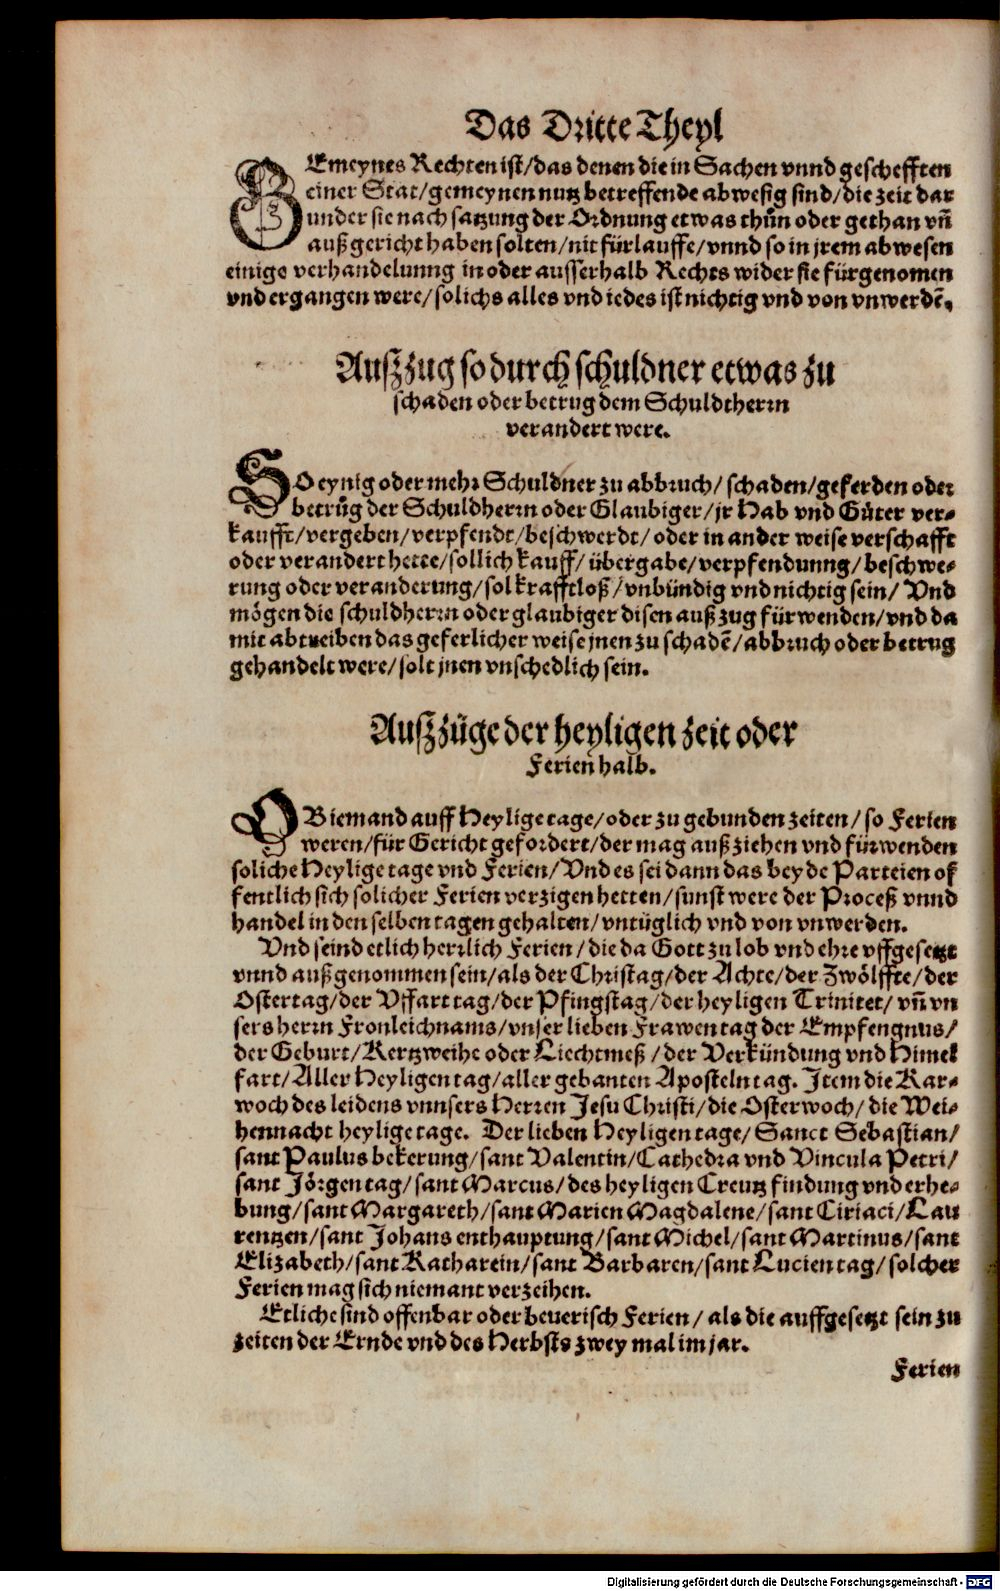 Das Dritte Theyl
GEmeynes Rechten ist/das denen die in Sachen vnnd geschefften
einer Stat/gemeynen nutz betreffende abwesig sind/die zeit dar
under sie nach satzung der Ordnung etwas thůn oder gethan vñ
außgericht haben solten/nit fürlauffe/vnnd so in jrem abwesen
einige verhandelunng in oder ausserhalb Rechts wider sie fürgenomen
vnd ergangen were/solichs alles vnd iedes ist nichtig vnd von vnwerdẽ.
Außzug so durch schuldner etwas zu
schaden oder betrug dem Schuldtherrn
verandert were.
SO eynig oder mehr Schuldner zu abbruch/schaden/geferden oder
betrůg der Schuldherrn oder Glaubiger/jr Hab vnd Güter ver-
kaufft/vergeben/verpfendt/beschwerdt/oder in ander weise verschafft
oder verandert hette/sollich kauff/übergabe/verpfendunng/beschwe-
rung oder veranderung/sol krafftloß/vnbündig vnd nichtig sein/Vnd
mögen die schuldherrn oder glaubiger disen außzug fürwenden/vnd da
mit abtreiben das geferlicher weise jnen zu schadẽ/abbruch oder betrug
gehandelt were/solt jnen vnschedlich sein.
Außzüge der heyligen zeit oder
Ferien halb.
OB iemand auff Heylige tage/oder zu gebunden zeiten/so Ferien
weren/für Gericht gefordert/der mag außziehen vnd fürwenden
soliche Heylige tage vnd Ferien/Vnd es sei dann das beyde Parteien of
fentlich sich solicher Ferien verzigen hetten/sunst were der Proceß vnnd
handel in den selben tagen gehalten/vntüglich vnd von vnwerden.
Vnd seind etlich herrlich Ferien/die da Gott zu lob vnd ehre vffgesetzt
vnnd außgenommen sein/als der Christag/der Achte/der Zwölffte/der
Ostertag/der Vffart tag/der Pfingstag/der heyligen Trinitet/vñ vn
sers herrn Fronleichnams/vnser lieben Frawen tag der Empfengnus/
der Geburt/Kertzweihe oder Liechtmeß/der Verkündung vnd Himel
fart/Aller Heyligen tag/aller gebanten Aposteln tag. Item die Kar-
woch des leidens vnnsers Herren Jesu Christi/die Osterwoch/die Wei-
hennacht heylige tage. Der lieben Heyligen tage/Sanct Sebastian/
sant Paulus bekerung/sant Valentin/Cathedra vnd Vincula Petri/
sant Jörgen tag/sant Marcus/des heyligen Creutz findung vnd erhe-
bung/sant Margareth/sant Marien Magdalene/sant Ciriaci/Lau
rentzen/sant Johans enthauptung/sant Michel/sant Martinus/sant
Elizabeth/sant Katharein/sant Barbaren/sant Lucien tag/solcher
Ferien mag sich niemant verzeihen.
Etliche sind offenbar oder beuerisch Ferien/als die auffgesetzt sein zu
zeiten der Ernde vnd des Herbsts zwey mal im jar.
Ferien
Digitalisierung gefördert durch die Deutsche Forschungsgemeinschaft - DFG